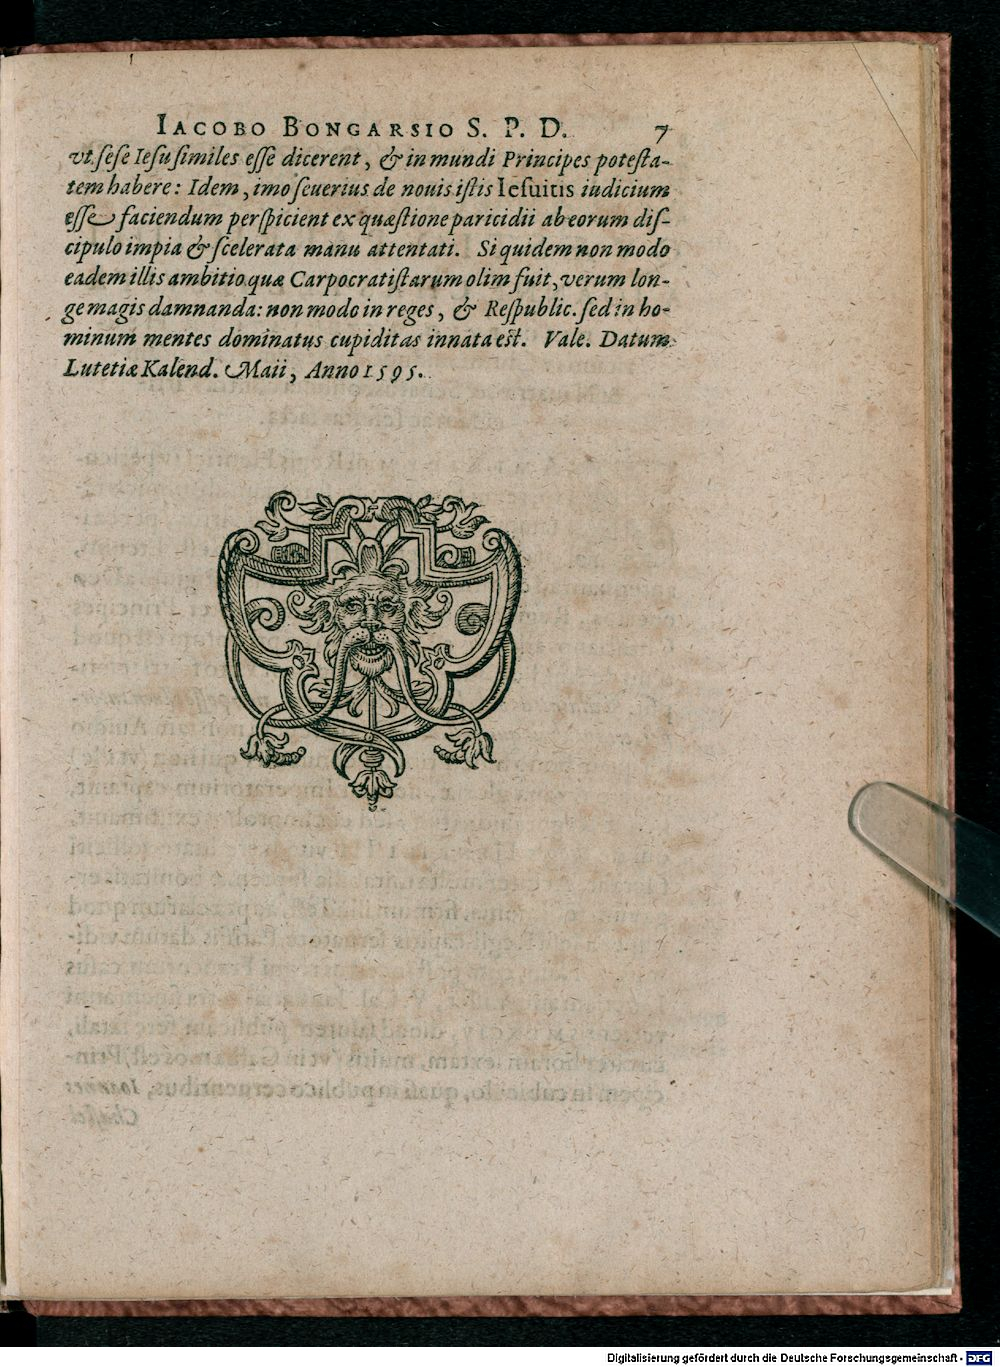 IACOBO BONGARSIO S. P. D. 7
vt sese Iesu similes esse dicerent, & in mundi Principes potesta-
tem habere: Idem, imo seuerius de nouis istis Iesuitis iudicium
esse faciendum perspicient ex quæstione paricidii ab eorum dis-
cipulo impia & scelerata manu attentati. Siquidem non modo
eadem illis ambitio quæ Carpocratistarum olim fuit, verum lon-
ge magis damnanda: non modo in reges, & Respublic. sed in ho-
minum mentes dominatus cupiditas innata est. Vale. Datum
Lutetiæ Kalend. Maii, Anno 1595.
Digitalisierung gefördert durch die Deutsche Forschungsgemeinschaft - DFG